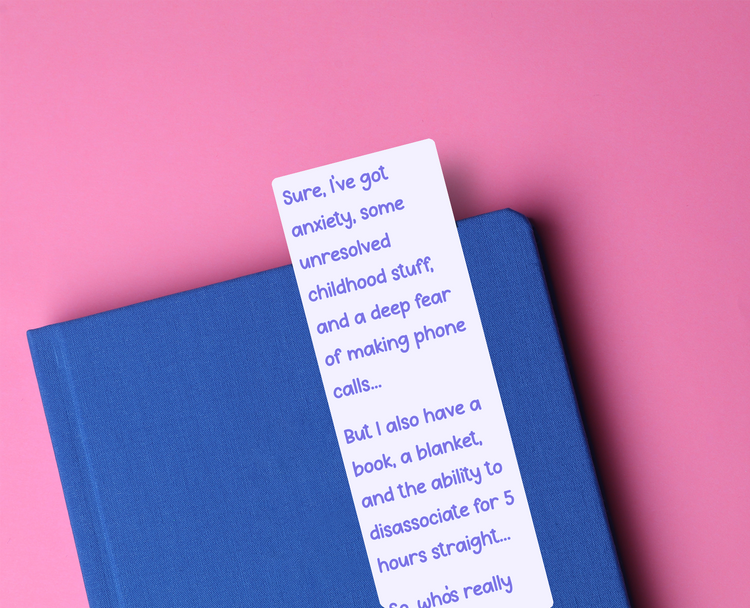 Sure, I've got
anxiety, some
unresolved
childhood stuff,
and a deep fear
of making phone
calls...
But I also have a
book, a blanket,
and the ability to
disassociate for 5
hours straight...
So, who's really